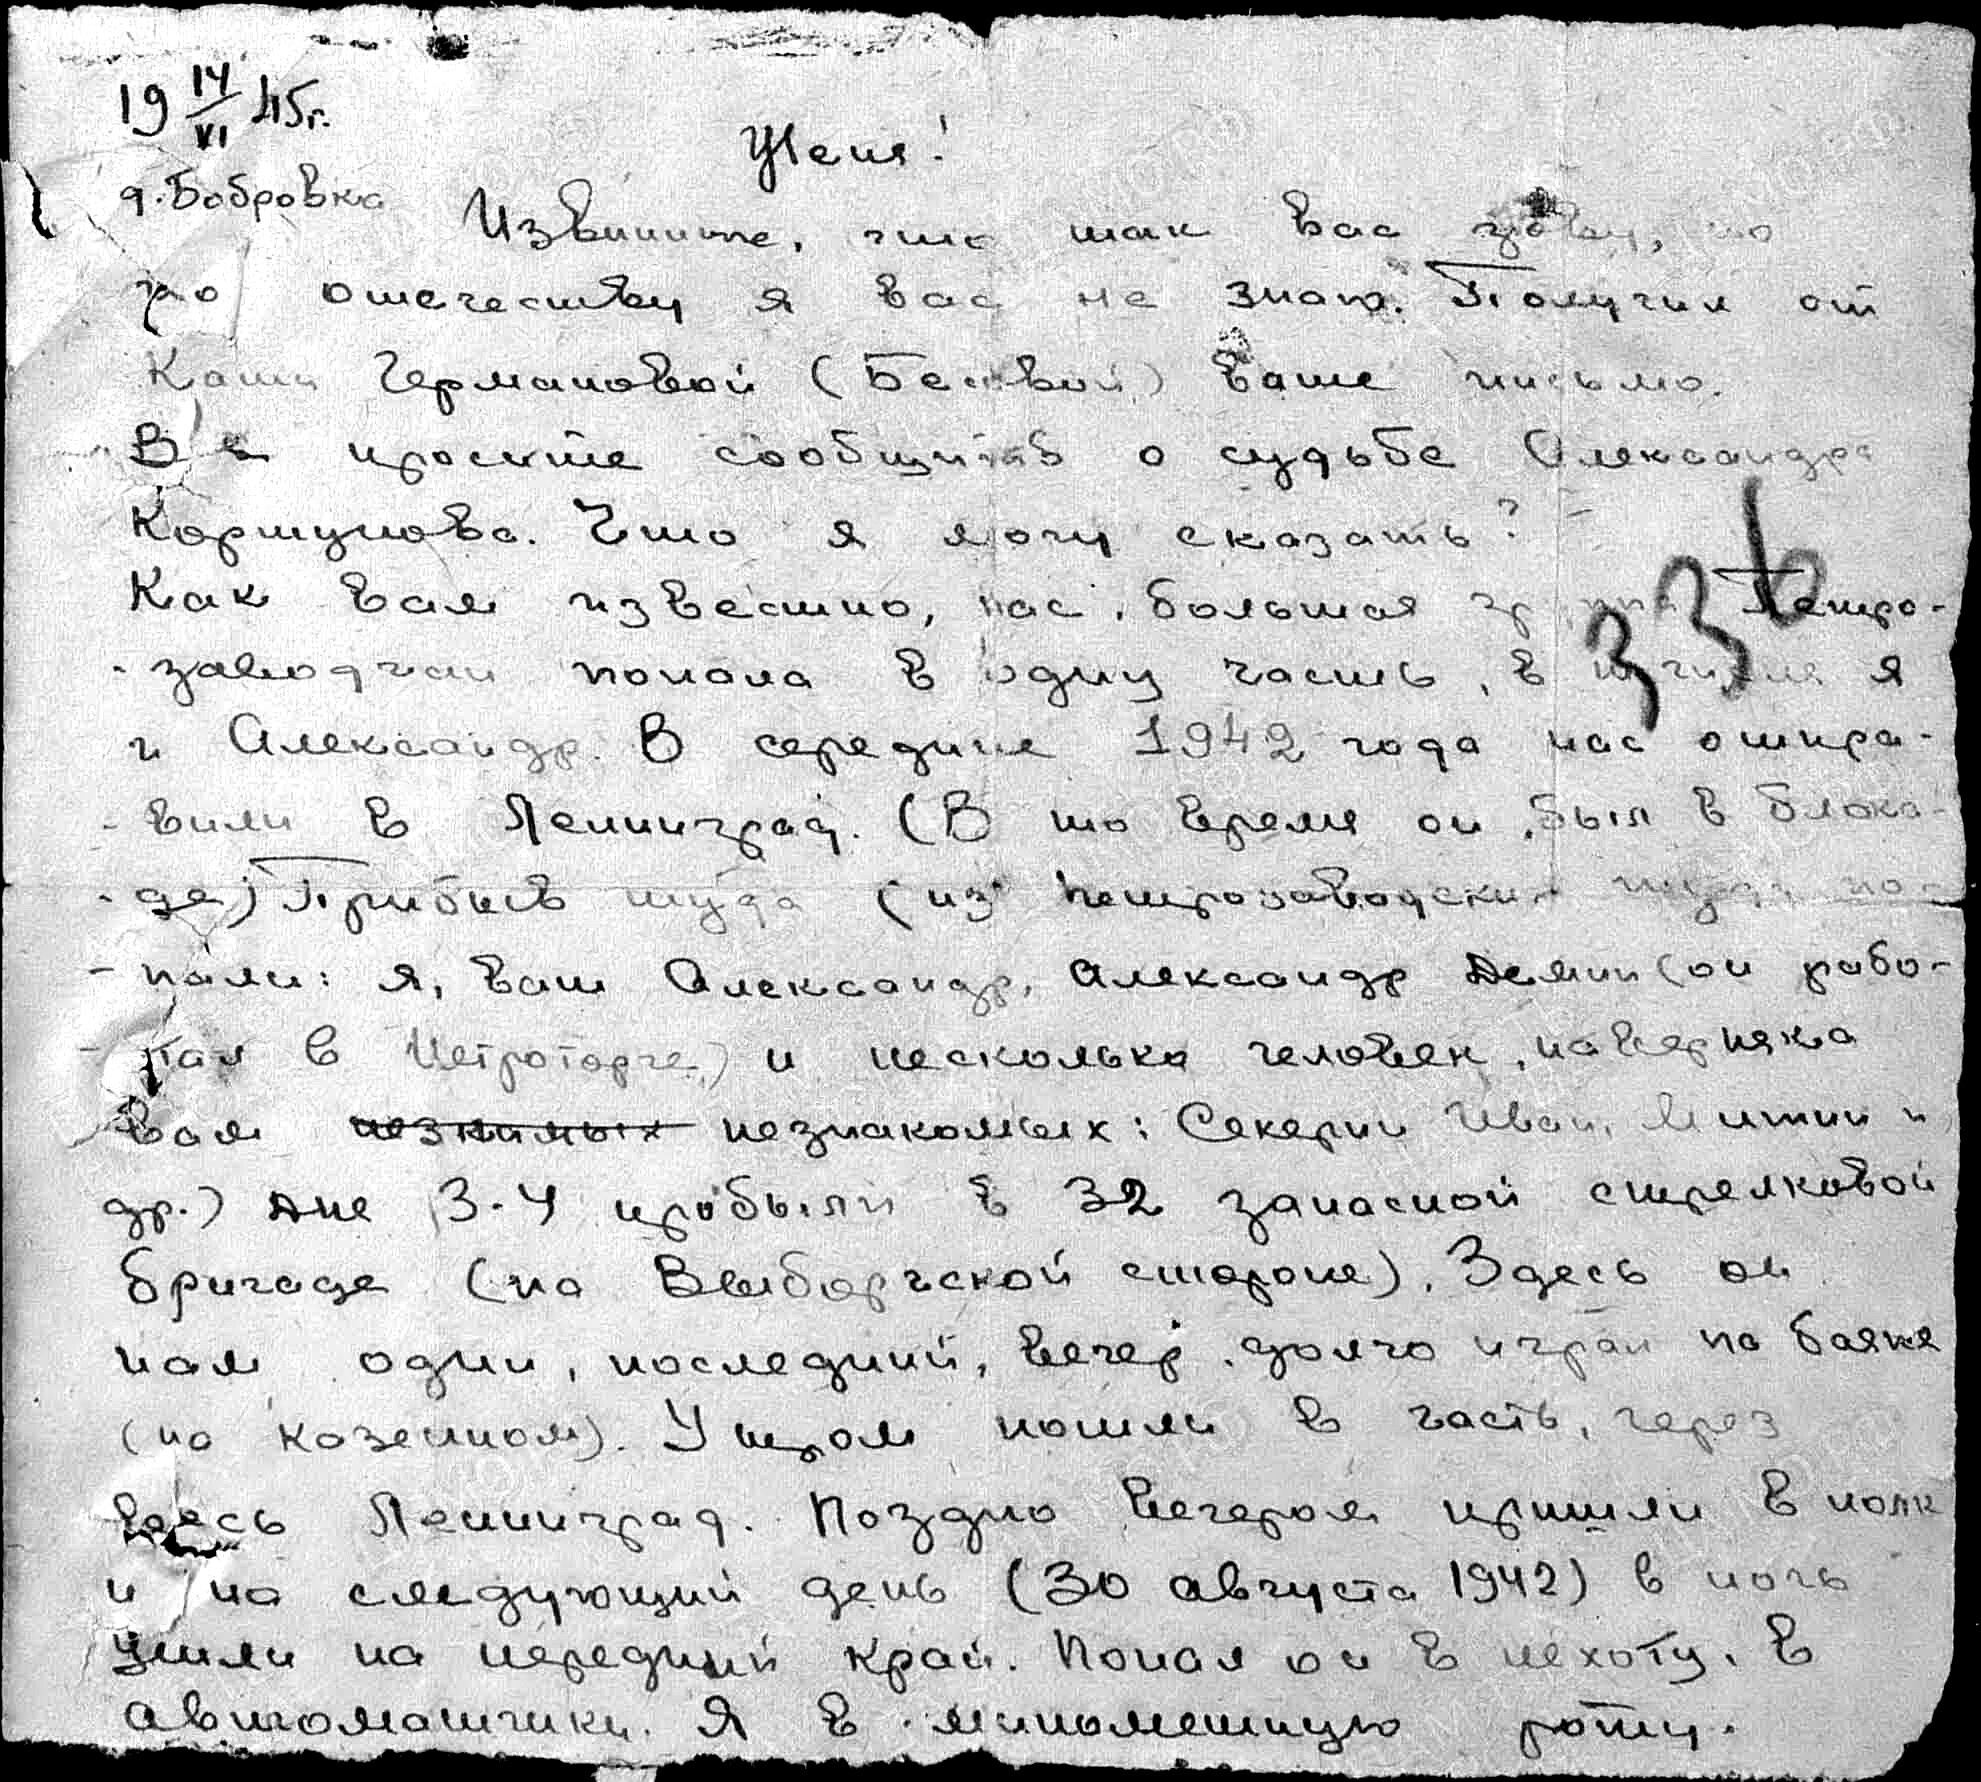 19 14/VI 45г.
Женя!
д. Бобровка
Извините, что так вас зову, но
по отечеству я вас не знаю. Получил от
Кати Германовой ( ) ваше письмо.
Вы просите сообщить о судьбе Александра
Коршунова. Что я могу сказать?
Как вам известно, нас, большая группа Петро-
-заводчан попала в одну часть, в том числе я
и Александр. В середине 1942 года нас отпра-
-вили в Ленинград. (В то время он был в блока-
-де) Прибыв туда (из петрозаводских туда по-
-пали: я, ваш Александр, Александр Демин (он рабо-
-тал в Петроторге) и несколько человек, наверняка
вам незнакомых: Секерин Иван, Митин и
др.) Дне 3-4 пробыли в 32 запасной стрелковой
бригаде (на Выборгской стороне). Здесь он
нам один, последний, вечер долго играл на баяне
(на казенном). Утром пошли в часть, через
весь Ленинград. Поздно вечером пришли в полк
и на следующий день (30 августа 1942) в ночь
ушли на передний край. Попал он в пехоту, в
автоматчики. Я в минометную роту.